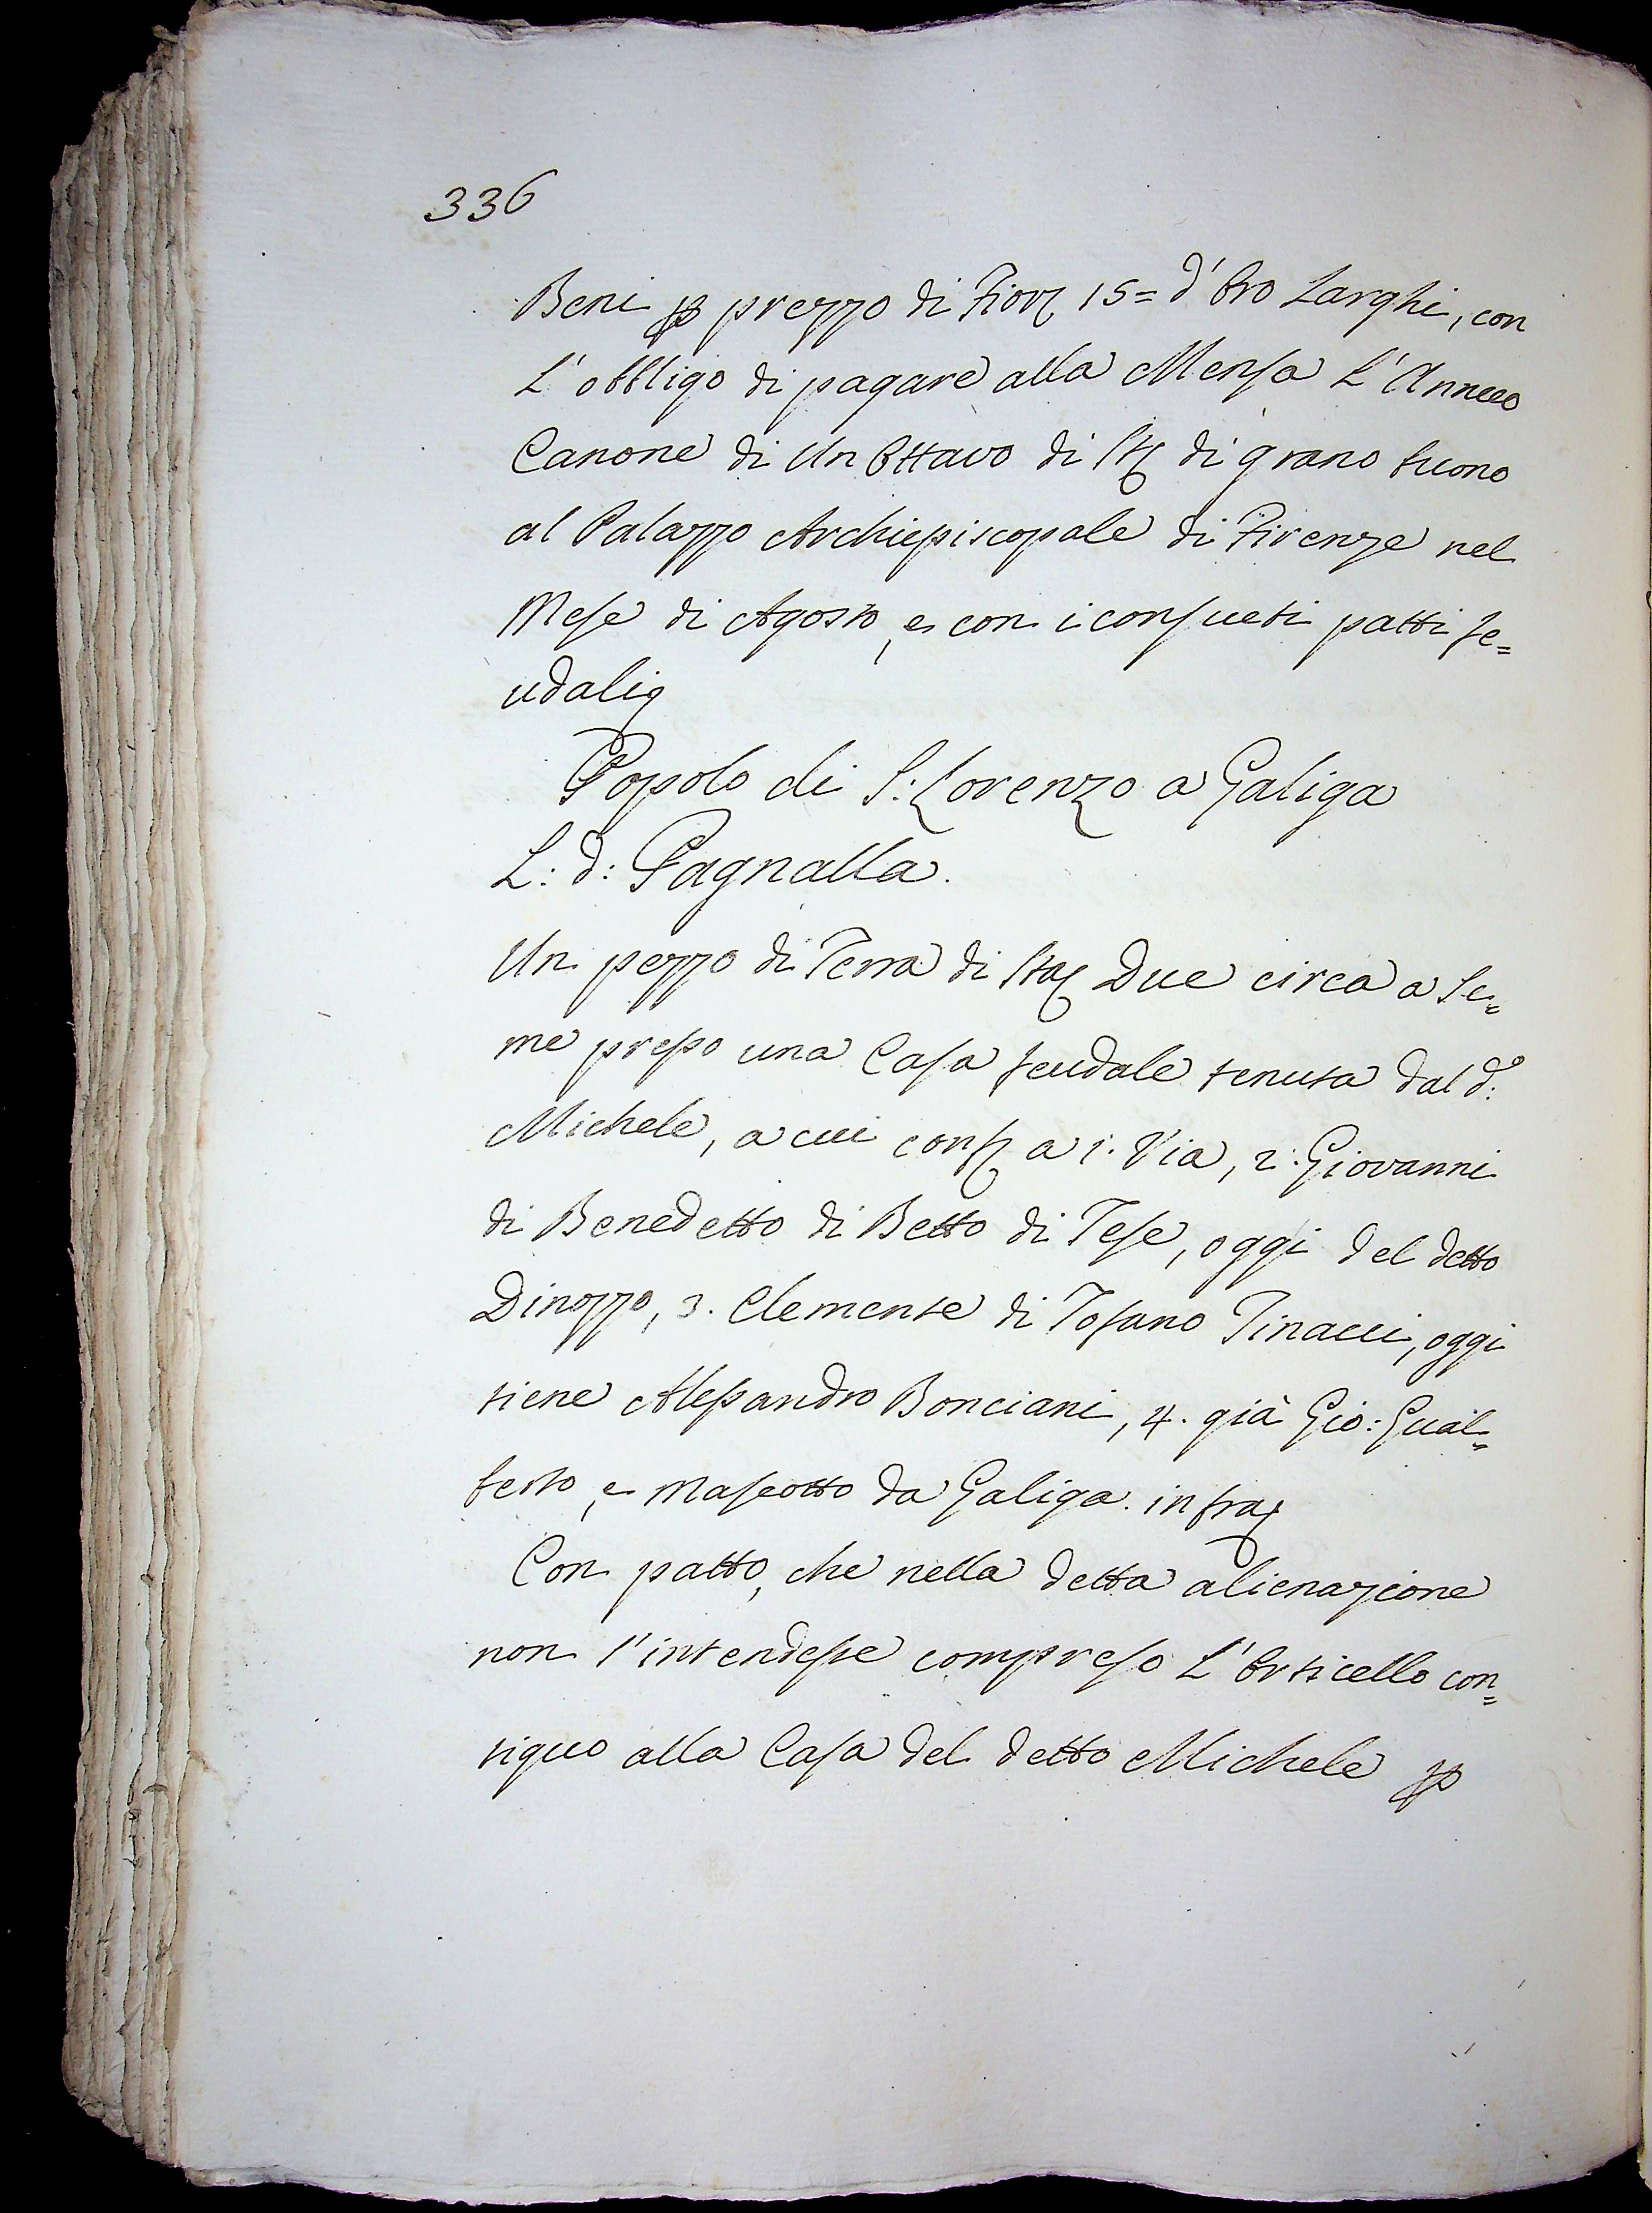 336
Beni ꝑ prezzo di Fior: 15= d'Oro Larghi, con
L'obbligo di pagare alla Mensa L'Annuo
Canone di Un Ottavo di St: di grano buono
al Palazzo Archiepiscopale di Firenze nel
Mese di Agosto, e con i consueti patti fe=
udali
Popolo di S: Lorenzo a Galiga
L: d: Pagnalla.
Un pezzo di Terra di Sta: Due circa a Se=
me presso una Casa feudale tenuta dal d:º
Michele, a cui conf: a 1. Via, 2. Giovanni
di Benedetto di Betto di Tese, oggi del detto
Dinozzo, 3. Clemente di Tofano Pinacci, oggi
tiene Alessandro Bonciani, 4. già Gio: Gual=
berto, e Mascotto da Galiga. infra:
Con patto, che nella detta alienazione
non s'intendesse compreso L'Orticello con=
tiguo alla Casa del detto Michele ꝑ